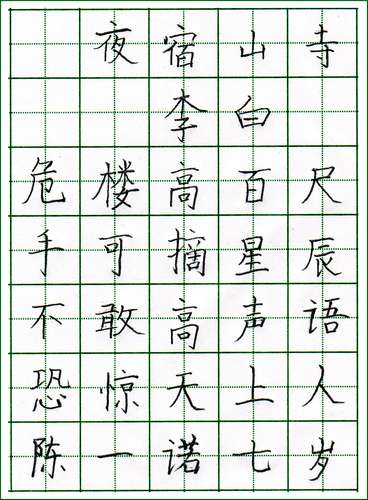 夜宿山寺
李白
危楼高百尺
手可摘星辰
不敢高声语
恐惊天上人
陈一诺七岁